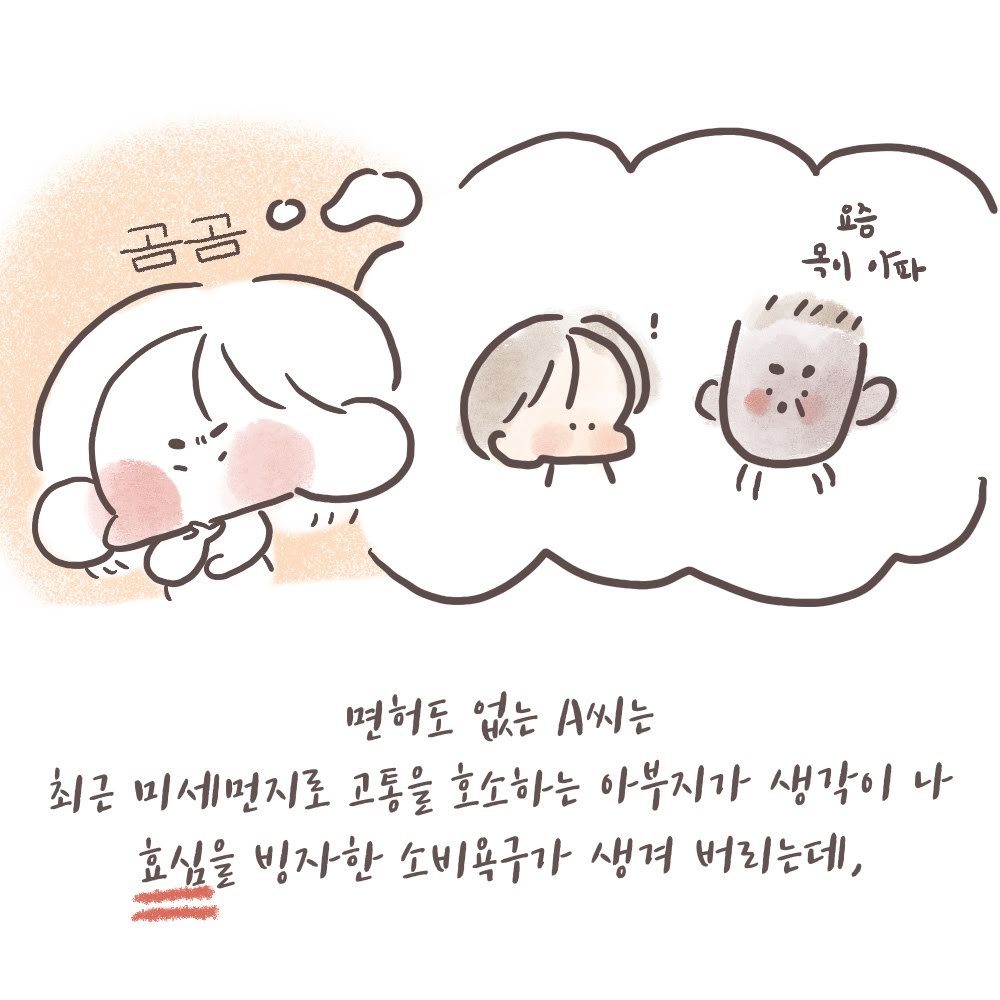 곰곰
!
요즘
목이 아파
면허도 없는 A씨는
최근 미세먼지로 고통을 호소하는 아부지가 생각이 나
효심을 빙자한 소비욕구가 생겨 버리는데,